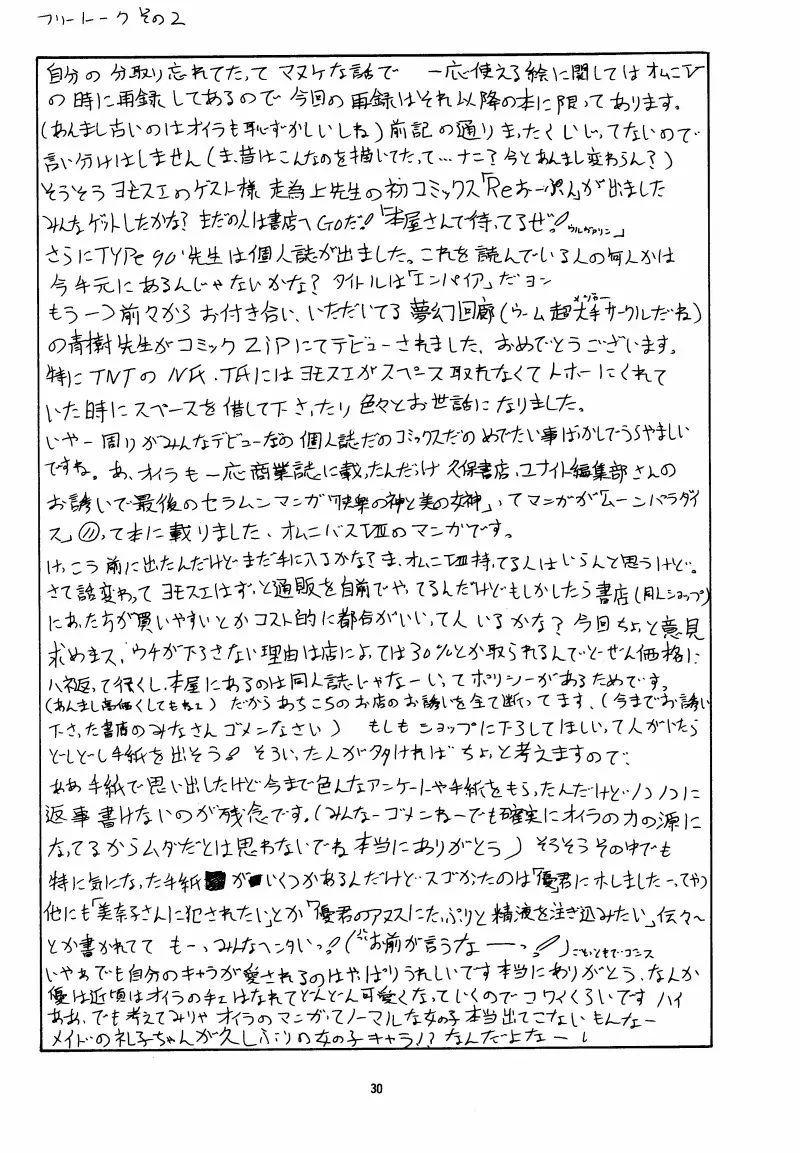 フリートーク その2
自分の分取り忘れてたってマヌケな話で 一応使える絵に関してはオムニV
の時に再録してあるので今回の再録はそれ以降の本に限ってあります。
(あんまし古いのはオイラも恥ずかしいしね)前記の通りまったくいじってないので
言い分けはしません(ま、昔はこんなのを描いてたって…ナニ?今とあんまし変わらん?)
そうそうヨモスエのゲスト様 走為上先生の初コミックス「Reおーぷん」が出ました
みんなゲットしたかな?まだの人は書店へGoだ!「本屋さんで待ってるぜ!ウルヴァリン」
さらにTYPe90'先生は個人誌が出ました。これを読んでいる人の何人かは
今手元にあるんじゃないかな?タイトルは「エンパイア」だヨン
もう一つ前々からお付き合い、いただいてる夢幻回廊(ウーム超大手メジャーサークルだね)
の青樹先生がコミックZiPにてデビューされました、おめでとうございます。
特にTNTのNFA.TFAにはヨモスエがスペース取れなくてトホーにくれて
いた時にスペースを借して下さったり色々とお世話になりました。
いやー周りがみんなデビューなの個人誌だのコミックスだのめでたい事ばかしでうらやましい
ですね。あ、オイラも一応商業誌に載ったんだっけ久保書店、ユナイト編集部さんの
お誘いで最後のセラムンマンガ「快楽の神と美の女神」ってマンガが「ムーンパラダイ
ス」⑪って本に載りました、オムニバスVIIIのマンガです。
けっこう前に出たんだけどまだ手に入るかな?ま、オムニVIII持ってる人はいらんと思うけど。
さて話変わってヨモスエはずっと通販を自前でやってるんだけどもしかしたら書店(同人ショップ)
にあった方が買いやすいとかコスト的に都合がいいって人いるかな?今回ちょっと意見
求めまス、ウチが下ろさない理由は店によっては30%とか取られるんでどーせん価格に
ハネ返って行くし、本屋にあるのは同人誌じゃなーいってポリシーがあるためです。
(あんまし高価くしてもねェ)だからあちこちのお店のお誘いを全て断ってます、(今までお誘い
下さった書店のみなさんゴメンなさい) もしもショップに下ろしてほしいって人がいたら
どしどし手紙を出そう!そういった人が多ければちょっと考えますので、
ああ手紙で思い出したけど今まで色んなアンケートや手紙をもらったんだけどノコノコに
返事書けないのが残念です。(みんなーゴメンねーでも確実にオイラの力の源に
なってるからムダだとは思わないでね本当にありがとう)そうそうその中でも
特に気になった手紙がいくつかあるんだけどスゴかったのは「優君にホレました」ってやつ
他にも「美奈子さんに犯されたい」とか「優君のアヌスにたっぷりと精液を注ぎ込みたい」伝々〜
とか書かれてて もーっみんなヘンタいっ!(お前が言うなーっ!)
いやぁでも自分のキャラが愛されるのはやっぱりうれしいです本当にありがとう、なんか
優は近頃はオイラのチェはなれてどんどん可愛くなっていくのでコワイくらいです ハイ
ああ、でも考えてみりゃオイラのマンガってノーマルな女の子本当出てこないもんなー
メイドの礼子ちゃんが久しぶりの女の子キャラ!?なんだよなー
30